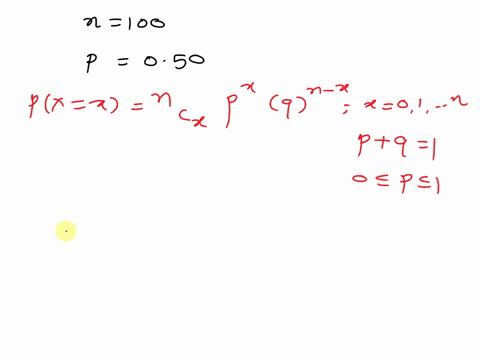 n = 100
p = 0.50
P(X = x) = ⁿCₓ pˣ (q)ⁿ⁻ˣ ; x = 0, 1, ... n
p + q = 1
0 ≤ p ≤ 1